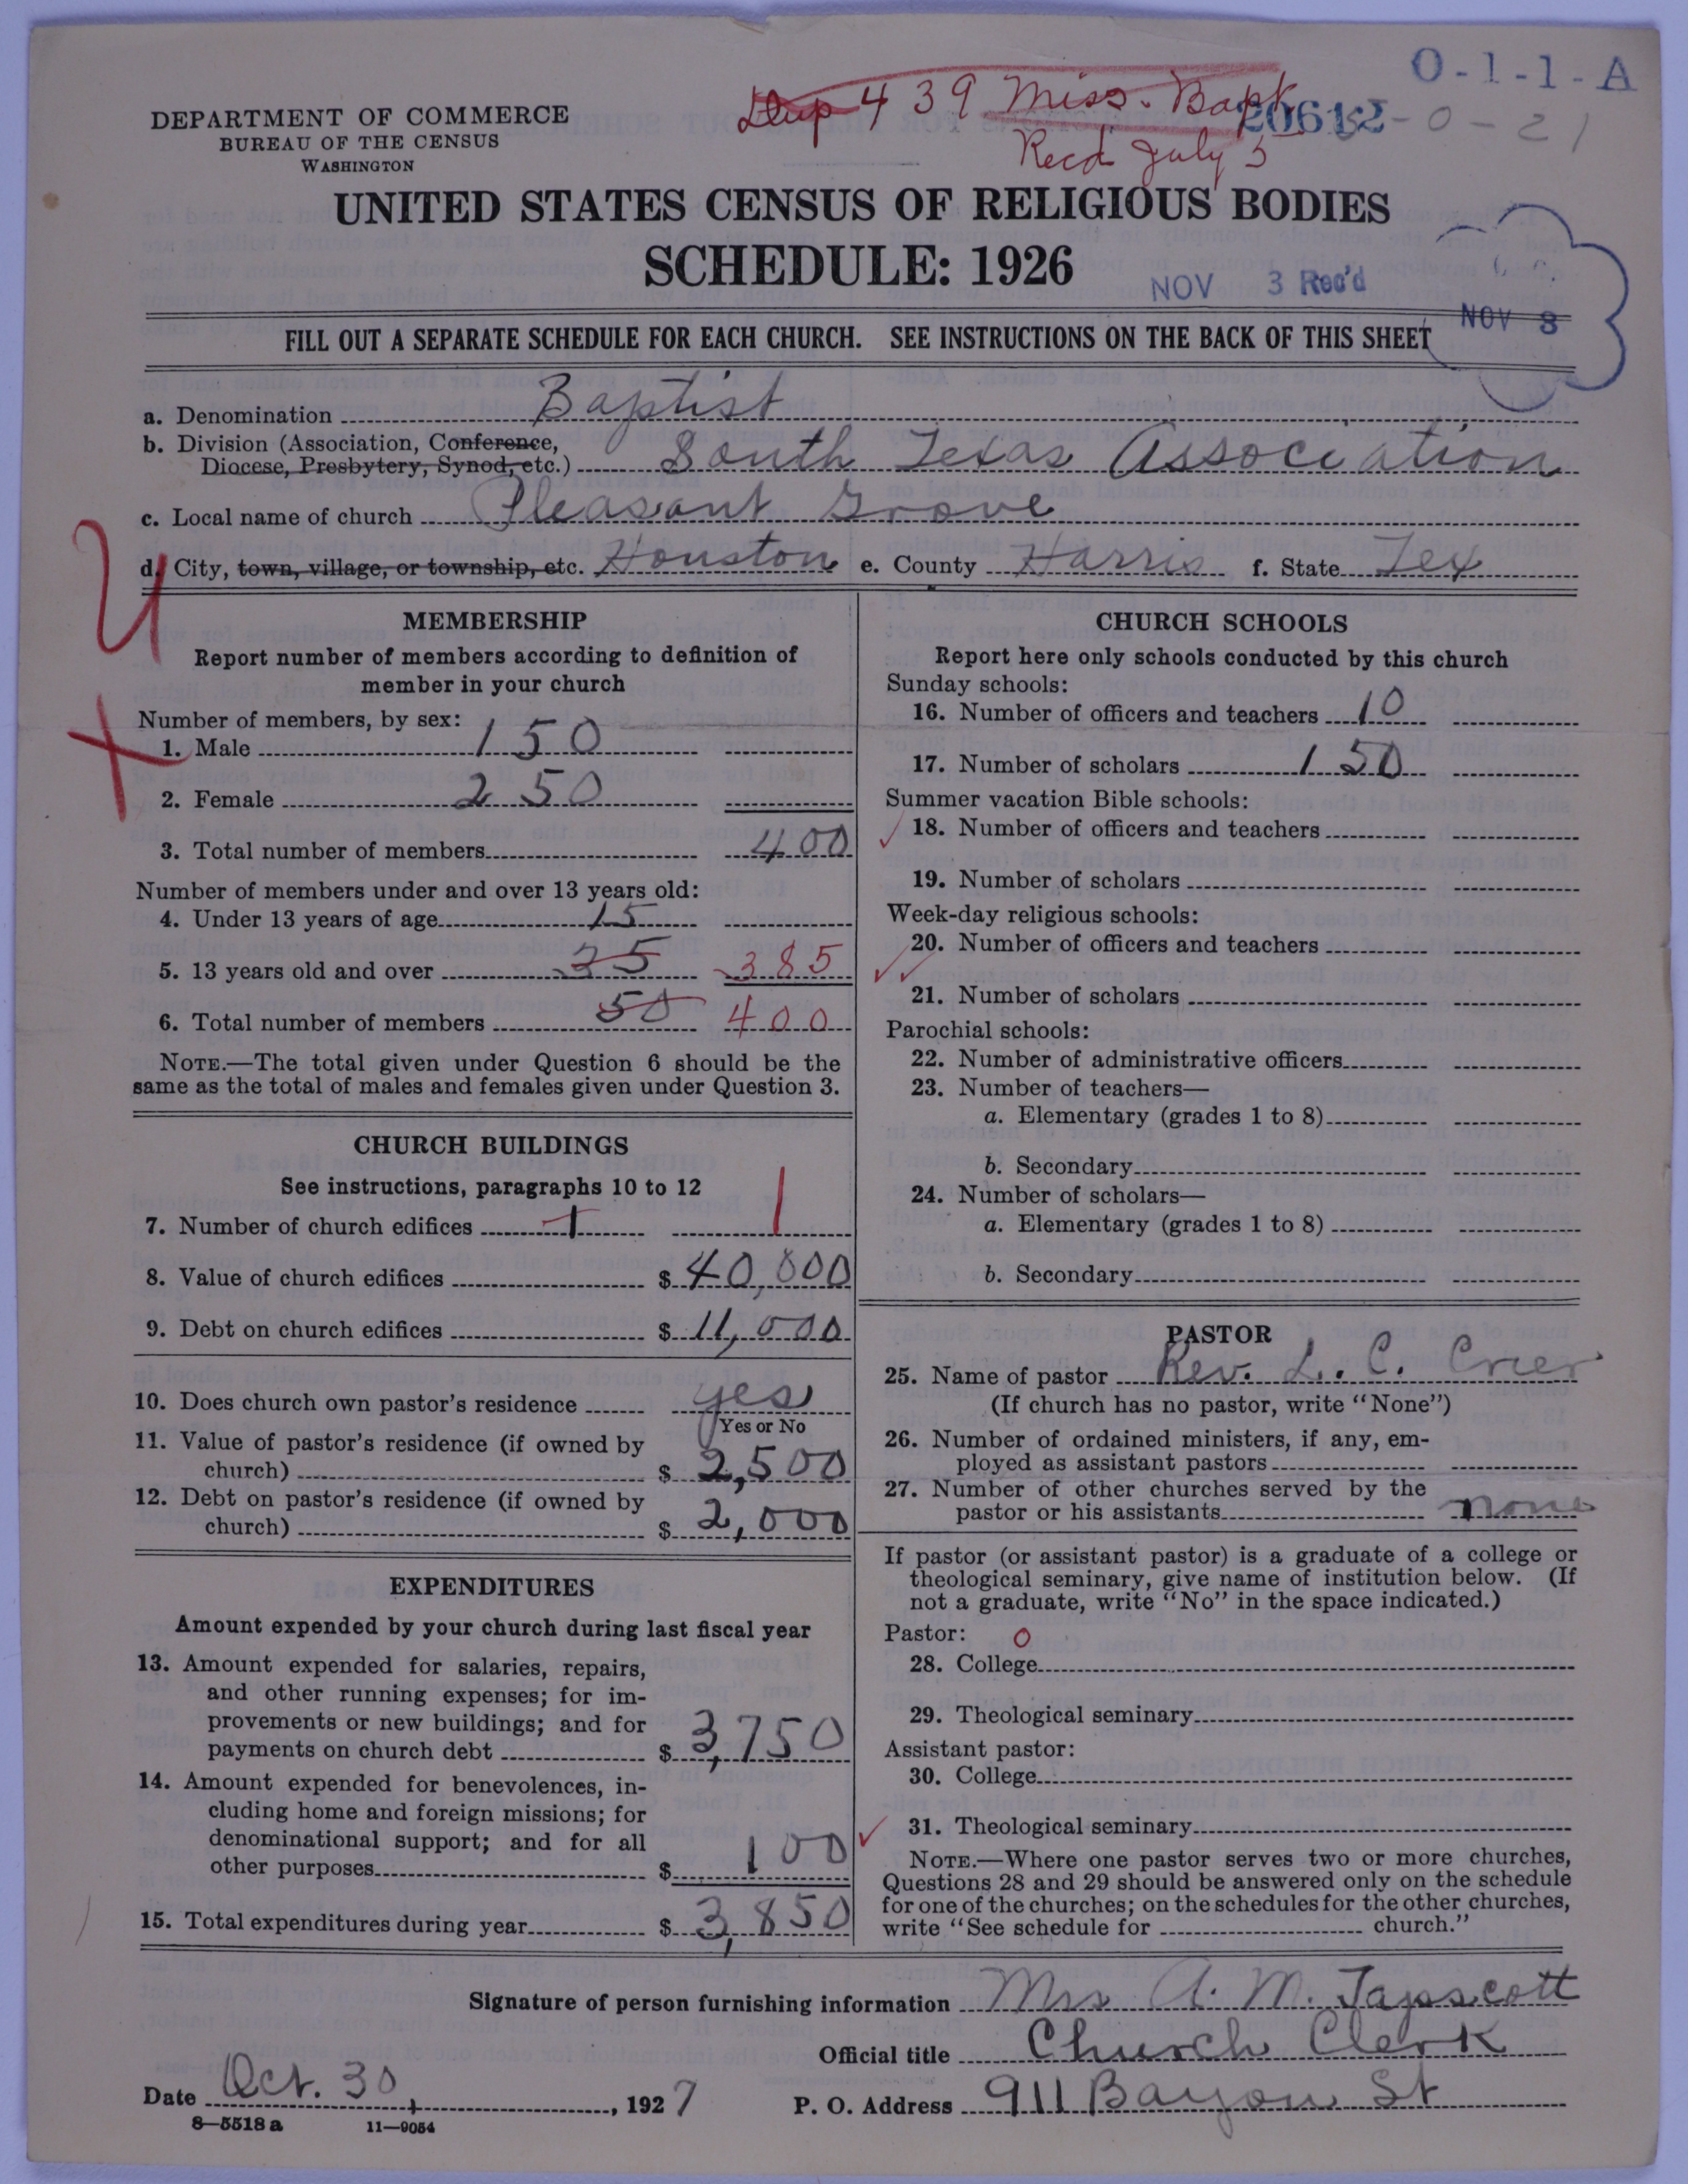 O-1-1-A
Dup 439 Miss. Bapt.
20612
-0-21
Rec'd July 5
DEPARTMENT OF COMMERCE
BUREAU OF THE CENSUS
WASHINGTON
UNITED STATES CENSUS OF RELIGIOUS BODIES
SCHEDULE: 1926
NOV 3 Rec'd
NOV 8
FILL OUT A SEPARATE SCHEDULE FOR EACH CHURCH. SEE INSTRUCTIONS ON THE BACK OF THIS SHEET
a. Denomination Baptist
b. Division (Association, Conference,
Diocese, Presbytery, Synod, etc.) South Texas Association
c. Local name of church Pleasant Grove
d. City, town, village, or township, etc. Houston e. County Harris f. State Tex
MEMBERSHIP
Report number of members according to definition of
member in your church
Number of members, by sex:
1. Male 150
2. Female 250
3. Total number of members 400
Number of members under and over 13 years old:
4. Under 13 years of age 15
5. 13 years old and over 35 385
6. Total number of members 50 400
NOTE.—The total given under Question 6 should be the
same as the total of males and females given under Question 3.
CHURCH BUILDINGS
See instructions, paragraphs 10 to 12
7. Number of church edifices 1 1
8. Value of church edifices $ 40,000
9. Debt on church edifices $ 11,000
10. Does church own pastor's residence yes
Yes or No
11. Value of pastor's residence (if owned by
church) $ 2,500
12. Debt on pastor's residence (if owned by
church) $ 2,000
EXPENDITURES
Amount expended by your church during last fiscal year
13. Amount expended for salaries, repairs,
and other running expenses; for im-
provements or new buildings; and for
payments on church debt $ 3,750
14. Amount expended for benevolences, in-
cluding home and foreign missions; for
denominational support; and for all
other purposes $ 100
15. Total expenditures during year $ 3,850
CHURCH SCHOOLS
Report here only schools conducted by this church
Sunday schools:
16. Number of officers and teachers 10
17. Number of scholars 150
Summer vacation Bible schools:
18. Number of officers and teachers
19. Number of scholars
Week-day religious schools:
20. Number of officers and teachers
21. Number of scholars
Parochial schools:
22. Number of administrative officers
23. Number of teachers—
a. Elementary (grades 1 to 8)
b. Secondary
24. Number of scholars—
a. Elementary (grades 1 to 8)
b. Secondary
PASTOR
25. Name of pastor Rev. L. C. Crier
(If church has no pastor, write "None")
26. Number of ordained ministers, if any, em-
ployed as assistant pastors
27. Number of other churches served by the
pastor or his assistants none
If pastor (or assistant pastor) is a graduate of a college or
theological seminary, give name of institution below. (If
not a graduate, write "No" in the space indicated.)
Pastor: 0
28. College
29. Theological seminary
Assistant pastor:
30. College
31. Theological seminary
NOTE.—Where one pastor serves two or more churches,
Questions 28 and 29 should be answered only on the schedule
for one of the churches; on the schedules for the other churches,
write "See schedule for church."
Signature of person furnishing information Mrs A. M. Tapscott
Official title Church Clerk
Date Oct. 30, 1927 P. O. Address 911 Bayou St
8—5518 a 11—9054